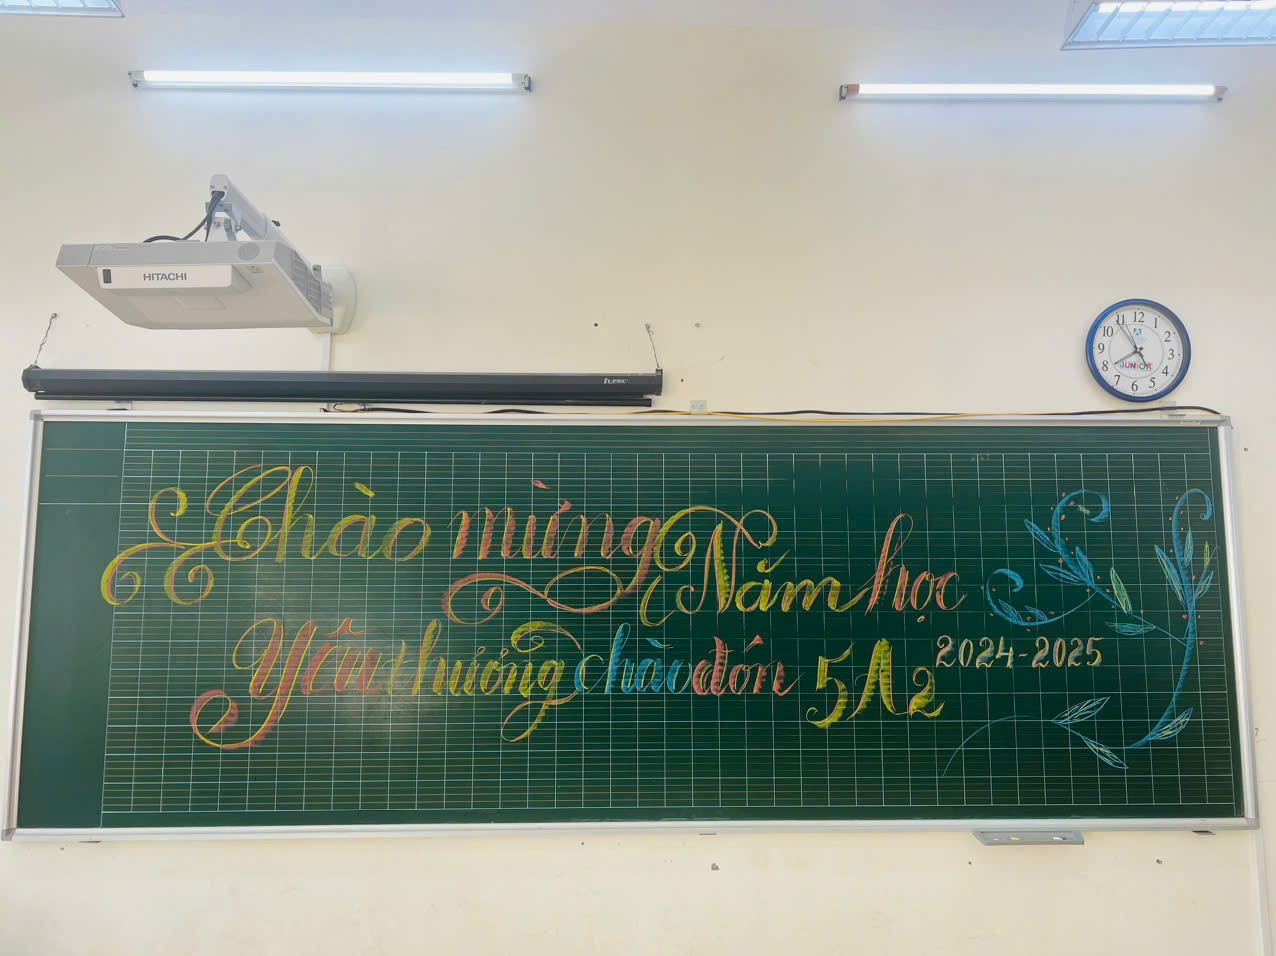 HITACHI
12
1
2
3
4
5
6
7
8
9
10
11
JUNIOR
Chào mừng Năm học
2024-2025
Yêu thương chào đón 5A2